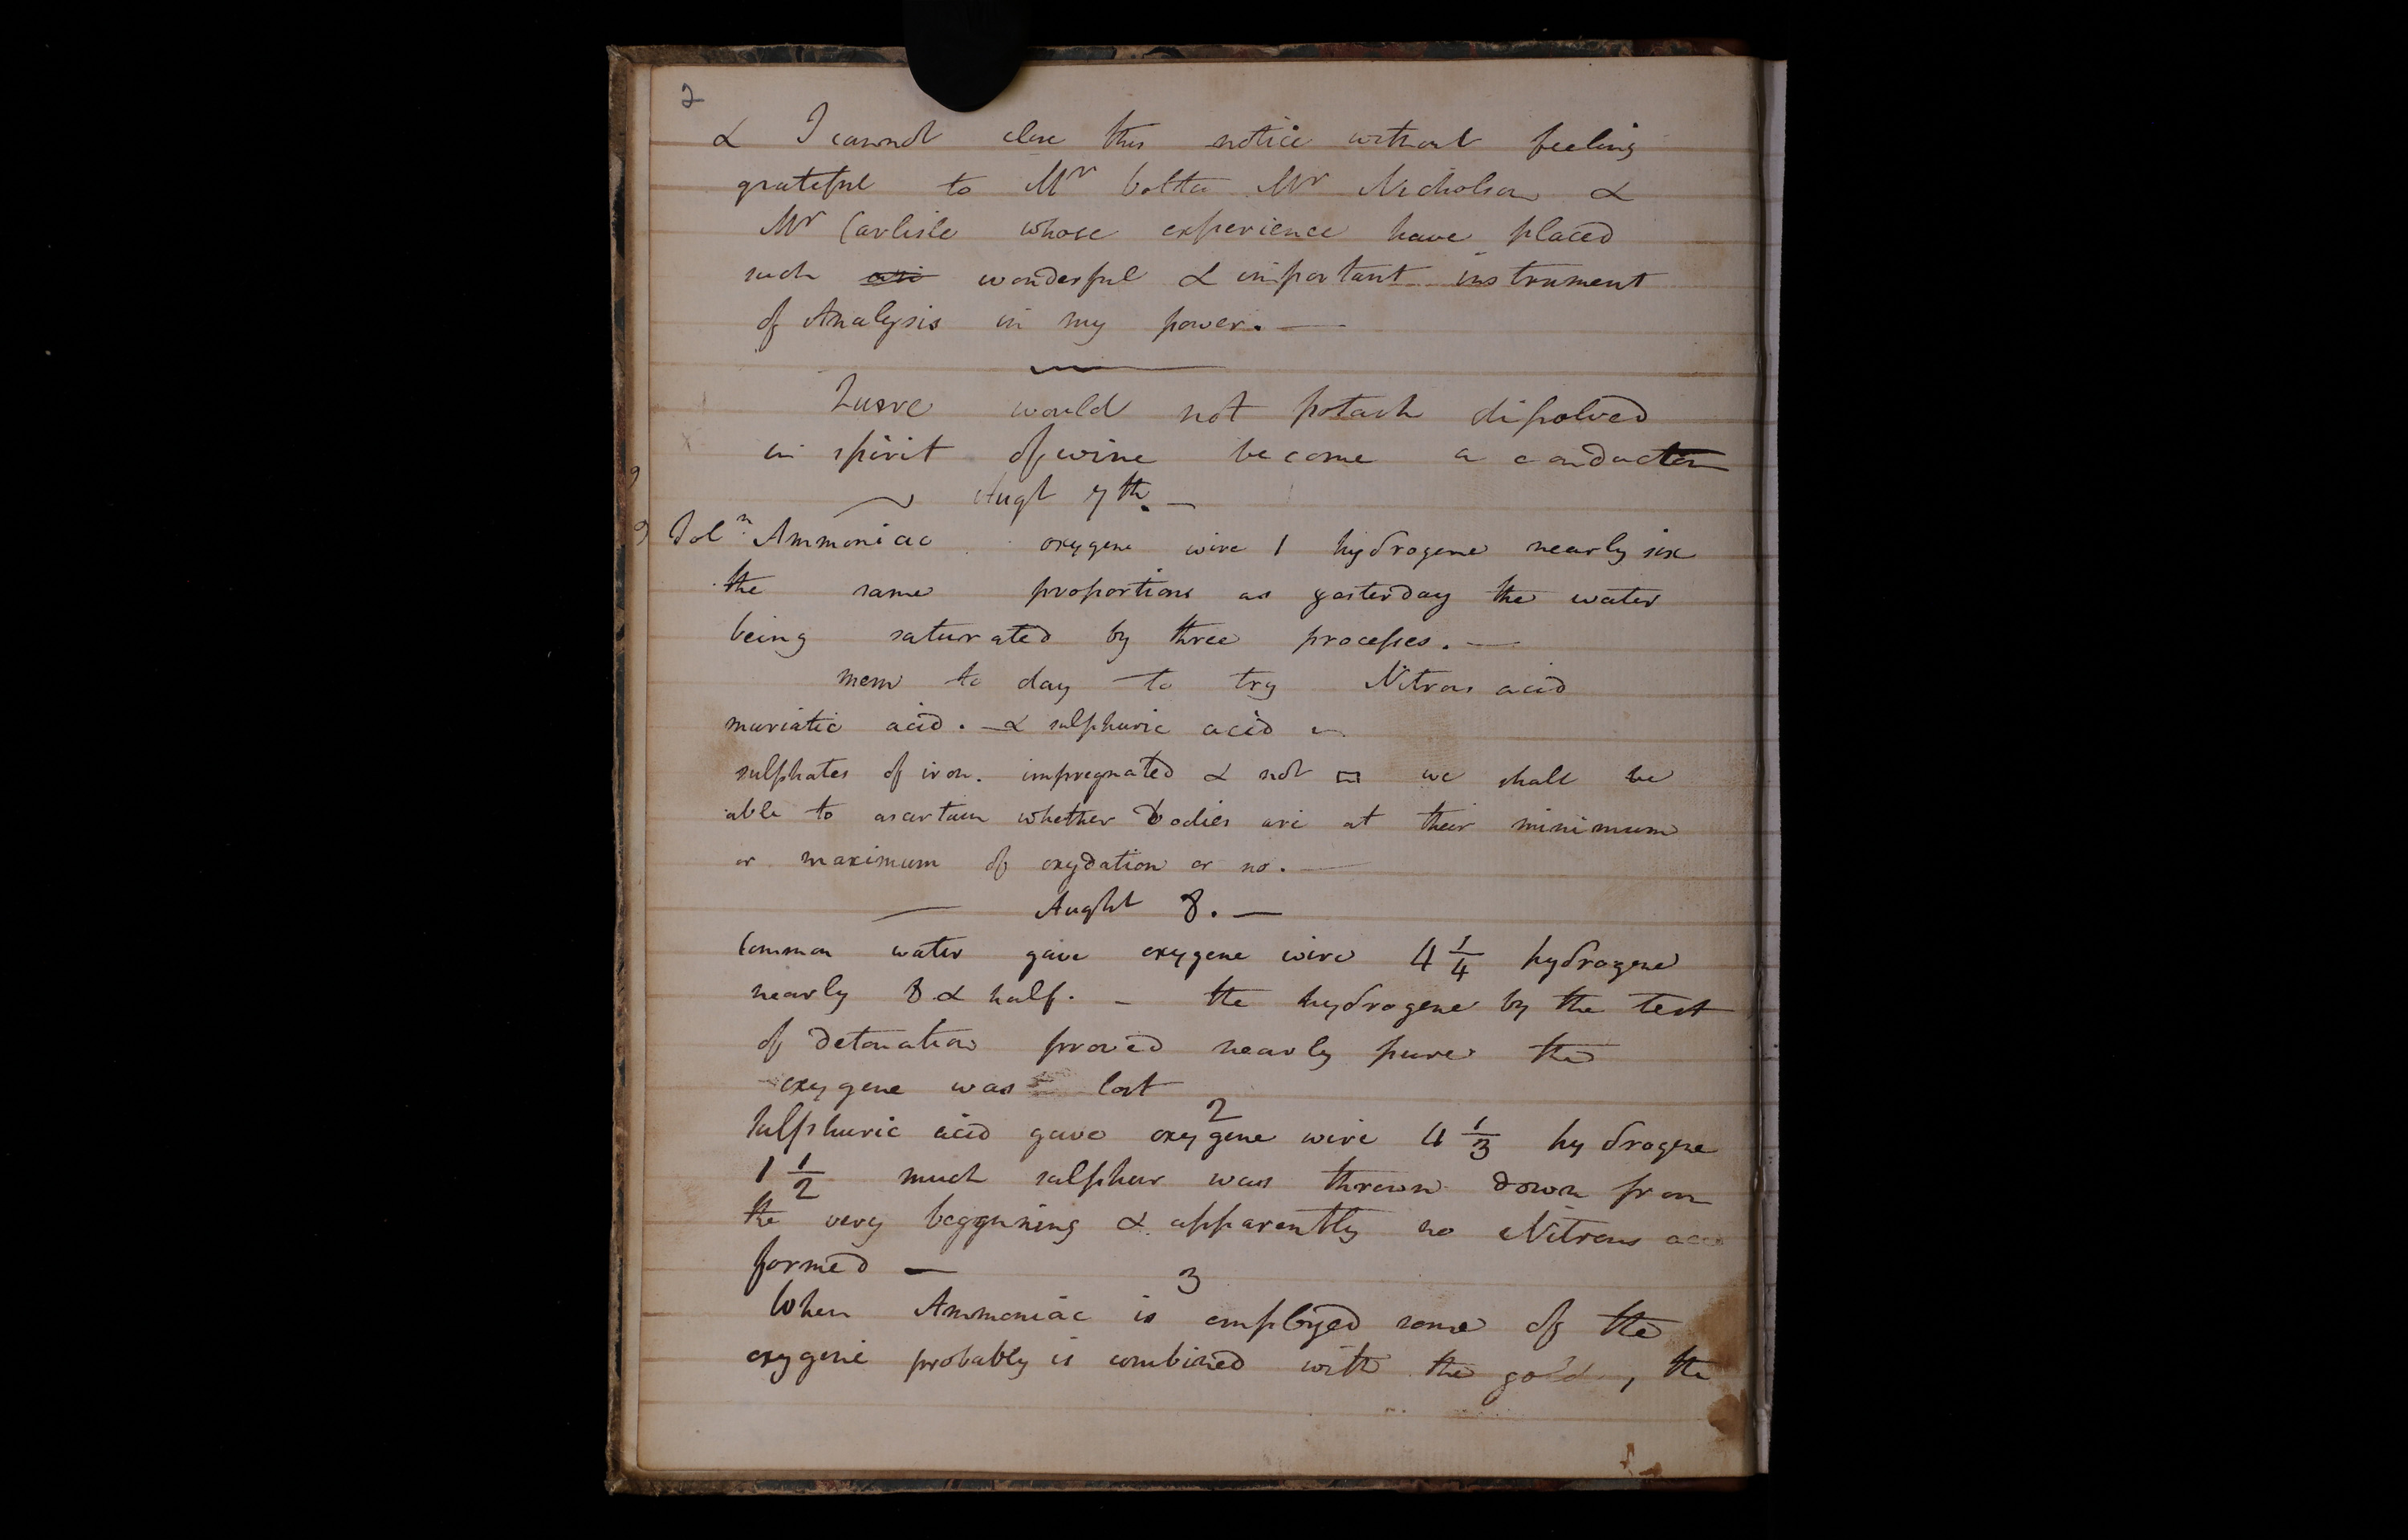 2
& I cannot close this notice without feeling
grateful to Mr Volta Mr Nicholson &
Mr Carlisle whose experience have placed
such wonderful & important instrument
of Analysis in my power. —
Quere would not potash dissolved
in spirit of wine become a conductor
Augt 7th. —
Soln Ammoniac oxygene wire 1 hydrogene nearly six
the same proportions as yesterday the water
being saturated by three processes. —
mem to day to try Nitrous acid
muriatic acid. — & sulphuric acid
sulphates of iron. impregnated & not we shall be
able to asertain whether bodies are at their minimum
or maximum of oxydation or no. —
— Aught 8. —
Common water gave oxygene wire 4 1/4 hydrogene
nearly 8 & half. — the hydrogene by the test
of detonation proved nearly pure the
oxygene was lost
2
Sulphuric acid gave oxygene wire 4 1/3 hydrogene
1 1/2 much sulphur was thrown down from
the very beggining & apparently no Nitrous acid
formed —
3
When Ammoniac is employed some of the
oxygene probably is combined with the gold, the